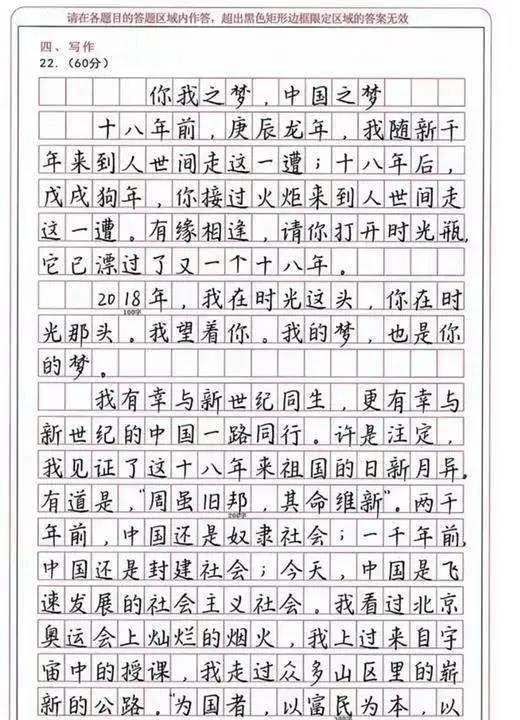 请在各题目的答题区域内作答，超出黑色矩形边框限定区域的答案无效
四、写作
22.（60分）
你我之梦，中国之梦
十八年前，庚辰龙年，我随新千
年来到人世间走这一遭；十八年后，
戊戌狗年，你接过火炬来到人世间走
这一遭。有缘相逢，请你打开时光瓶，
它已漂过了又一个十八年。
2018年，我在时光这头，你在时
100字
光那头。我望着你。我的梦，也是你
的梦。
我有幸与新世纪同生，更有幸与
新世纪的中国一路同行。许是注定，
我见证了这十八年来祖国的日新月异。
有道是，“周虽旧邦，其命维新”。两千
200字
年前，中国还是奴隶社会；一千年前，
中国还是封建社会；今天，中国是飞
速发展的社会主义社会。我看过北京
奥运会上灿烂的烟火，我上过来自宇
宙中的授课，我走过众多山区里的崭
新的公路。“为国者，以富民为本，以